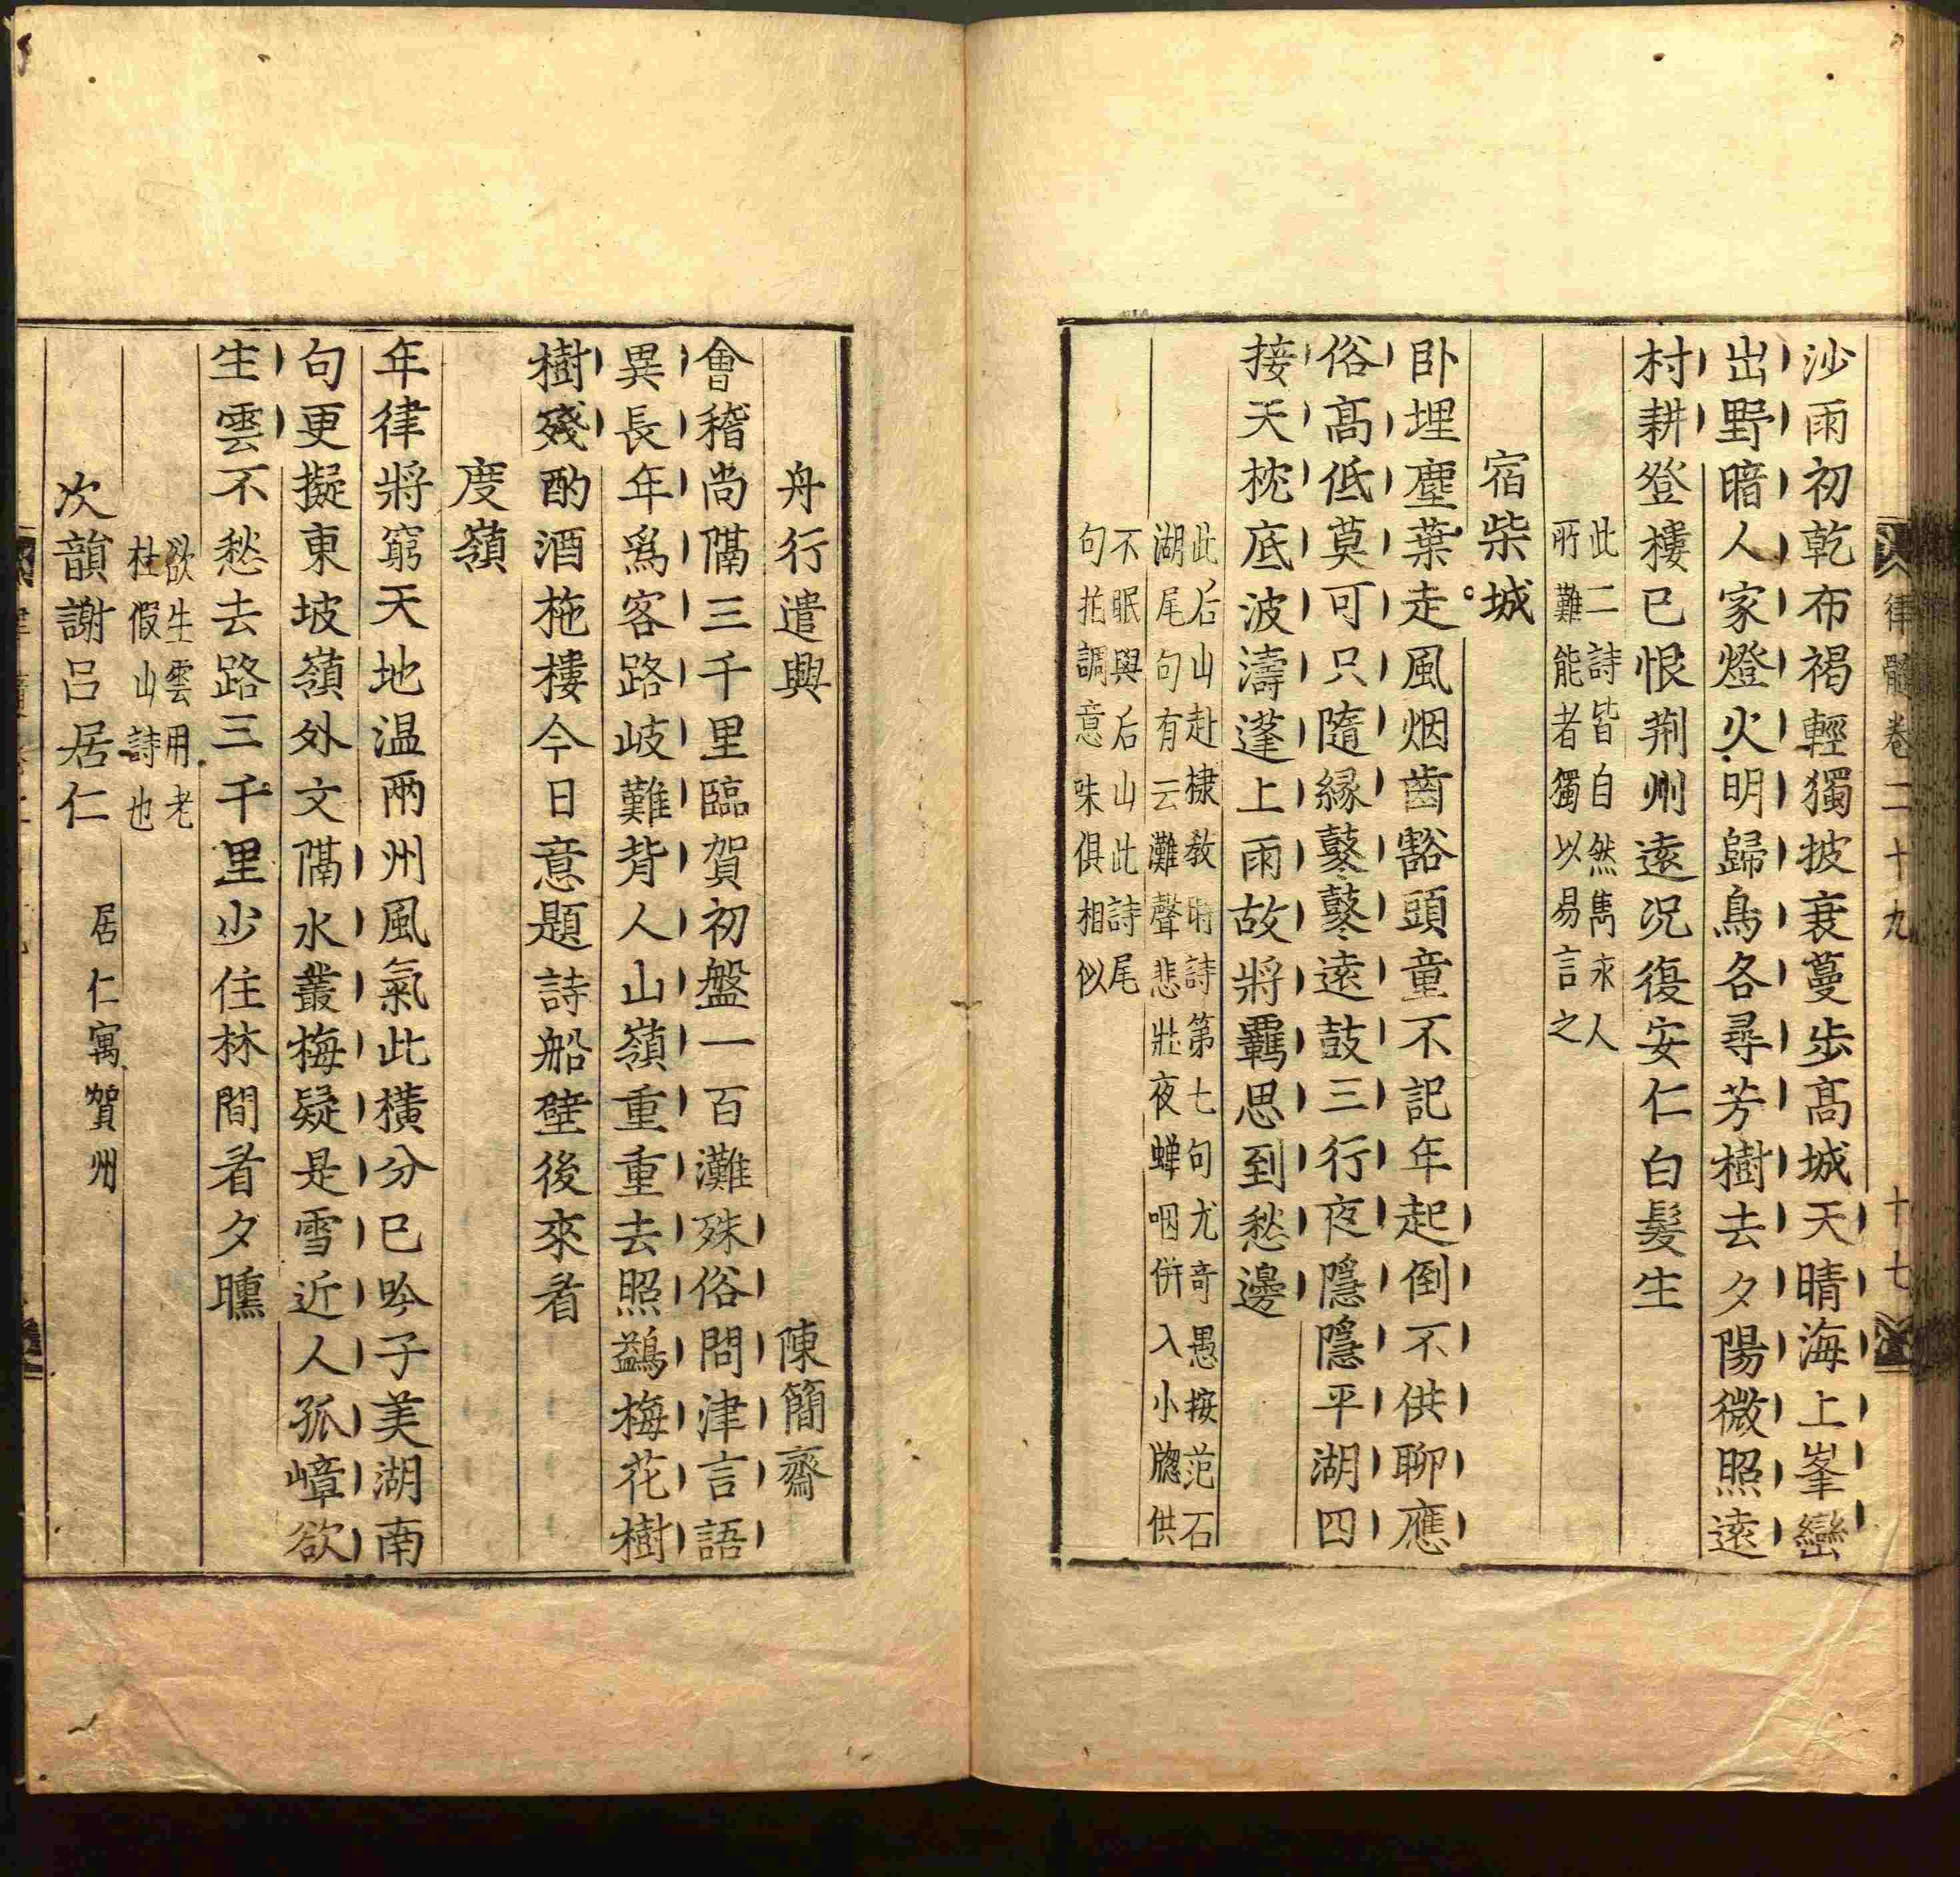 律髓卷二十九 十七
沙雨初乾布褐輕獨披衰蔓步髙城天晴海上峯巒
出野暗人家燈火明歸鳥各尋芳樹去夕陽微照遠
村耕登樓已恨荆州遠况復安仁白髮生
此二詩皆自然雋永人
所難能者獨以易言之
宿柴城
卧埋塵葉走風烟齒豁頭童不記年起倒不供聊應
俗髙低莫可只隨縁鼕鼕遠鼓三行夜隱隱平湖四
接天枕底波濤蓬上雨故將羈思到愁邊
此后山赴棣敎時詩第七句尤奇愚按范石
湖尾句有云灘聲悲壯夜蟬咽併入小牕供
不眠與后山此詩尾
句㧞調意味俱相似
舟行遣興 陳簡齋
會稽尚隔三千里臨賀初盤一百灘殊俗問津言語
異長年爲客路岐難背人山嶺重重去照鷁梅花樹
樹殘酌酒拖樓今日意題詩船壁後來看
度嶺
年律將窮天地温兩州風氣此横分已吟子美湖南
句更擬東坡嶺外文隔水叢梅疑是雪近人孤嶂欲
生雲不愁去路三千里少住林間看夕曛
欲生雲用老
杜假山詩也
次韻謝吕居仁 居仁寓賀州